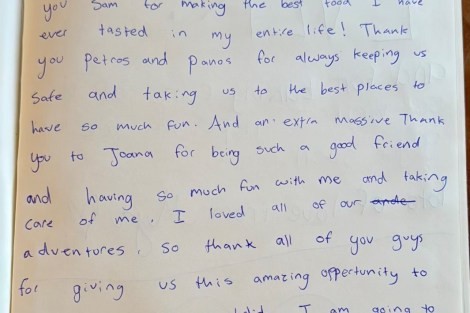 you Sam for making the best food I have
ever tasted in my entire life! Thank
you Petros and Panos for always keeping us
safe and taking us to the best places to
have so much fun. And an extra massive Thank
you to Joana for being such a good friend
and having so much fun with me and taking
care of me. I loved all of our ande
adventures, so thank all of you guys
for giving us this amazing oppertunity to
I am going to